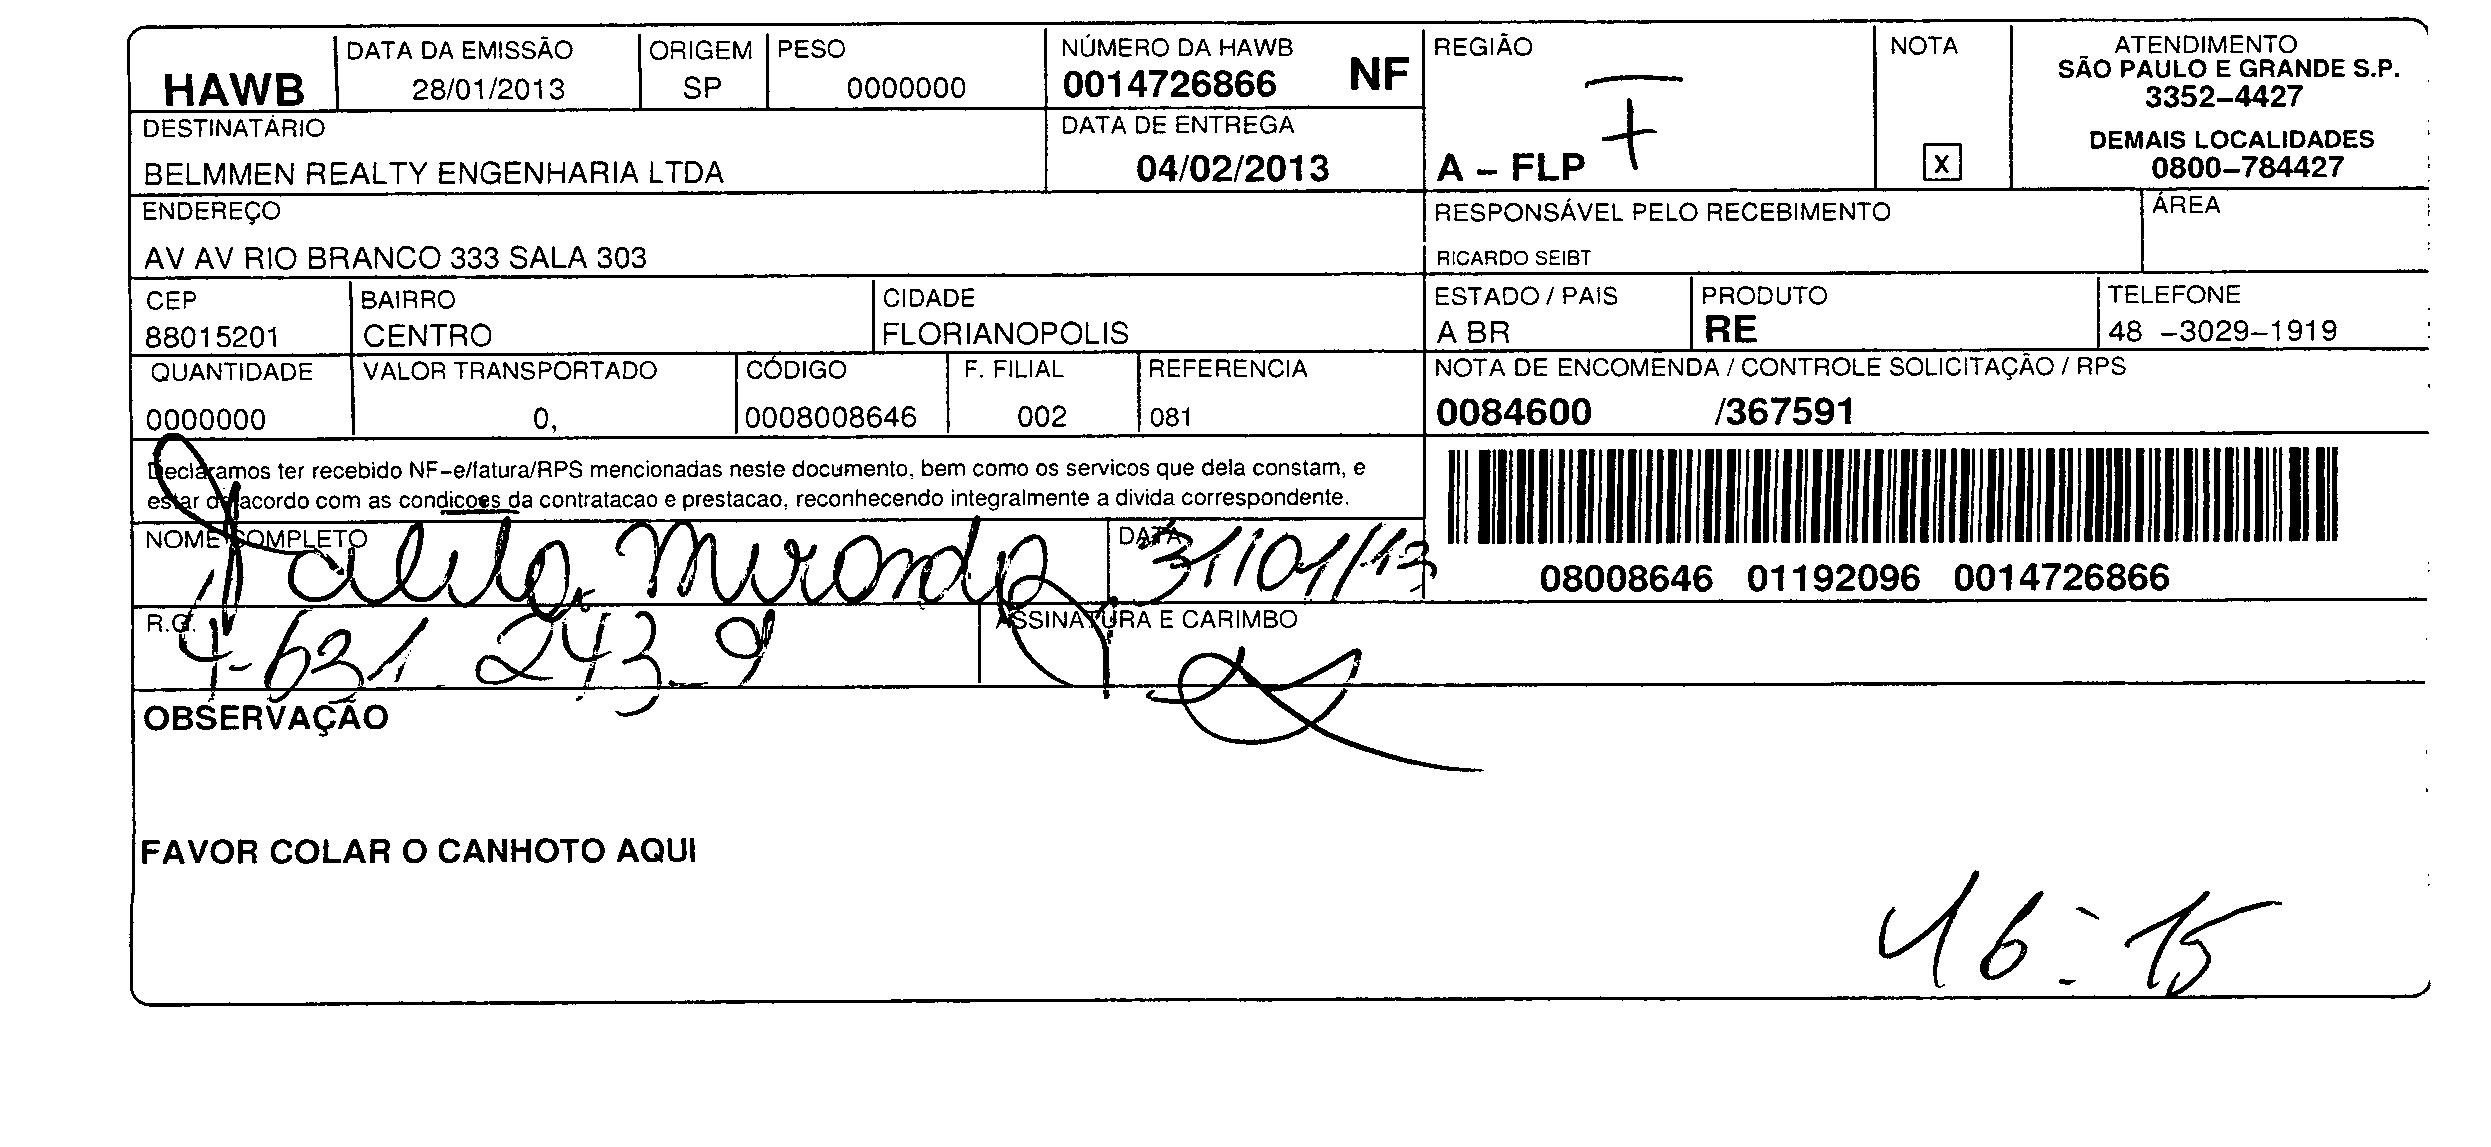 HAWB
DATA DA EMISSÃO
28/01/2013
ORIGEM
SP
PESO
0000000
NÚMERO DA HAWB
0014726866 NF
REGIÃO
A – FLP
NOTA
X
ATENDIMENTO
SÃO PAULO E GRANDE S.P.
3352–4427
DEMAIS LOCALIDADES
0800–784427
DESTINATÁRIO
BELMMEN REALTY ENGENHARIA LTDA
DATA DE ENTREGA
04/02/2013
ENDEREÇO
AV AV RIO BRANCO 333 SALA 303
RESPONSÁVEL PELO RECEBIMENTO
RICARDO SEIBT
ÁREA
CEP
88015201
BAIRRO
CENTRO
CIDADE
FLORIANOPOLIS
ESTADO / PAIS
A BR
PRODUTO
RE
TELEFONE
48 –3029–1919
QUANTIDADE
0000000
VALOR TRANSPORTADO
0,
CÓDIGO
0008008646
F. FILIAL
002
REFERENCIA
081
NOTA DE ENCOMENDA / CONTROLE SOLICITAÇÃO / RPS
0084600 /367591
Declaramos ter recebido NF–e/fatura/RPS mencionadas neste documento, bem como os servicos que dela constam, e
estar de acordo com as condicoes da contratacao e prestacao, reconhecendo integralmente a divida correspondente.
08008646 01192096 0014726866
NOME COMPLETO
Miranda
DATA
31/01/13
R.G.
4-631 243-9
ASSINATURA E CARIMBO
OBSERVAÇÃO
FAVOR COLAR O CANHOTO AQUI
16:15